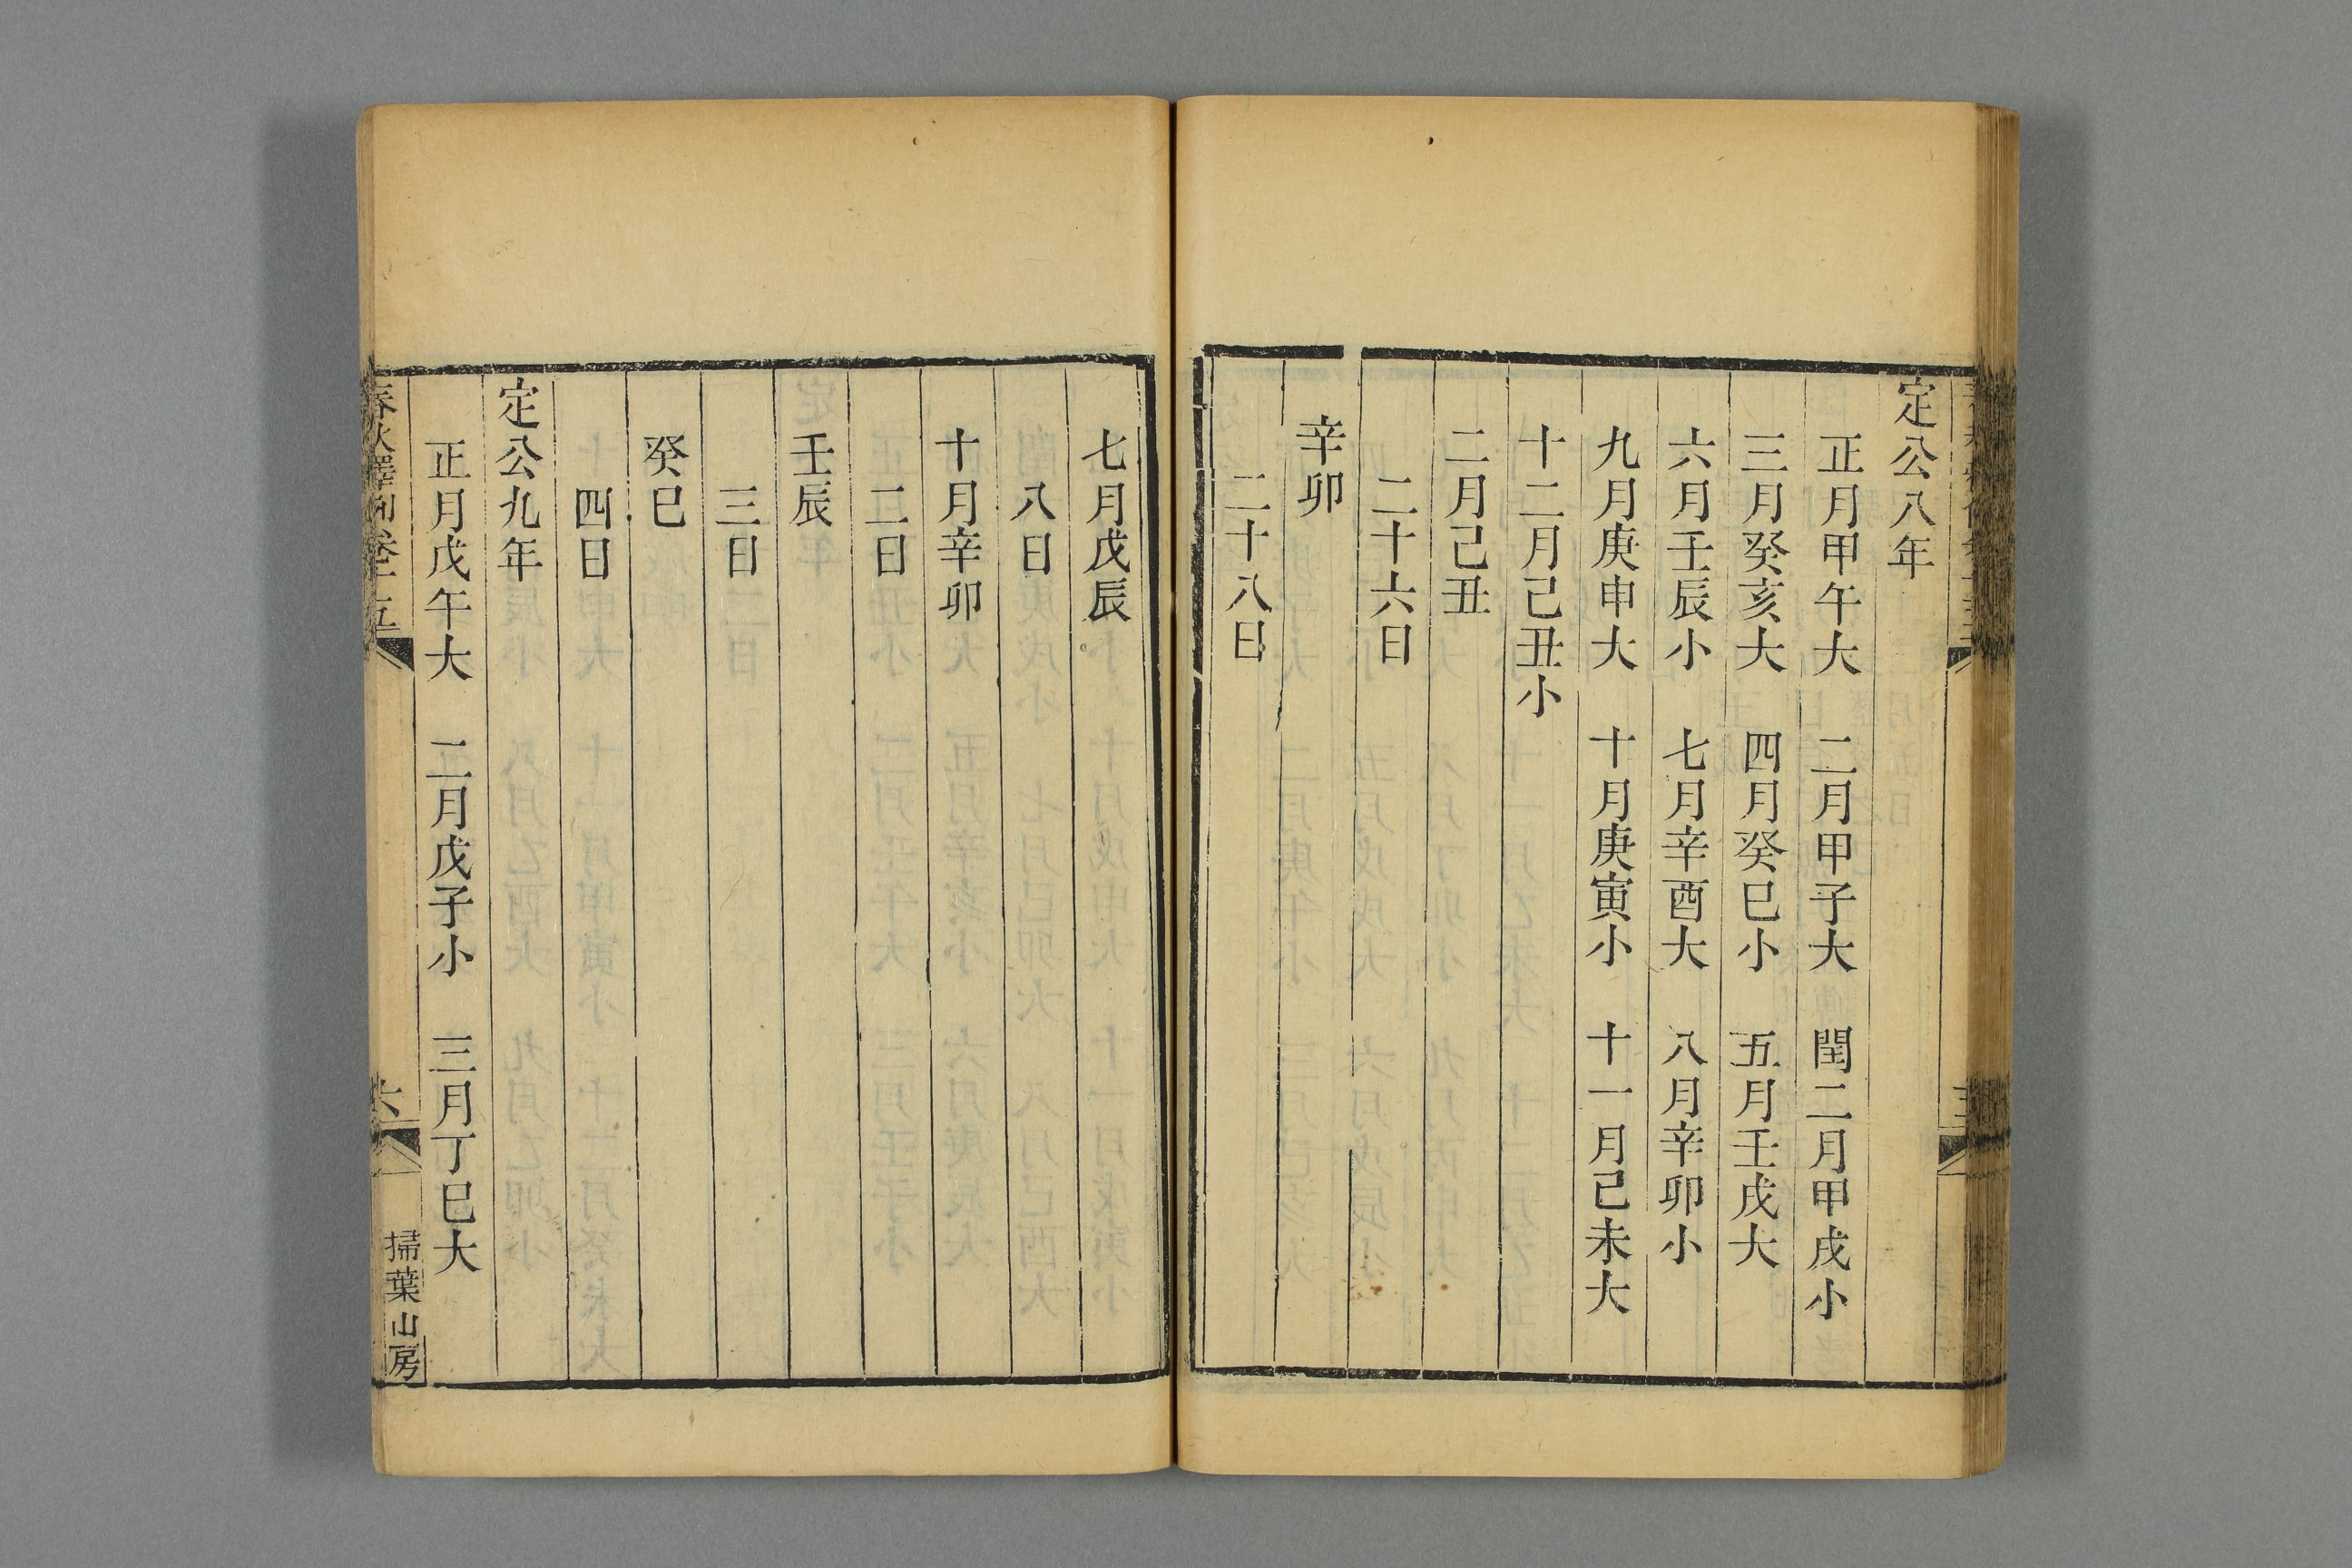 定公八年
正月甲午大　二月甲子大　閏二月甲戌小
三月癸亥大　四月癸巳小　五月壬戌大
六月壬辰小　七月辛酉大　八月辛卯小
九月庚申大　十月庚寅小　十一月己未大
十二月己丑小
二月己丑
二十六日
辛卯
二十八日
七月戊辰
八日
十月辛卯
二日
壬辰
三日
癸巳
四日
定公九年
正月戊午大　二月戊子小　三月丁巳大
春秋釋例卷十五
六
掃葉山房